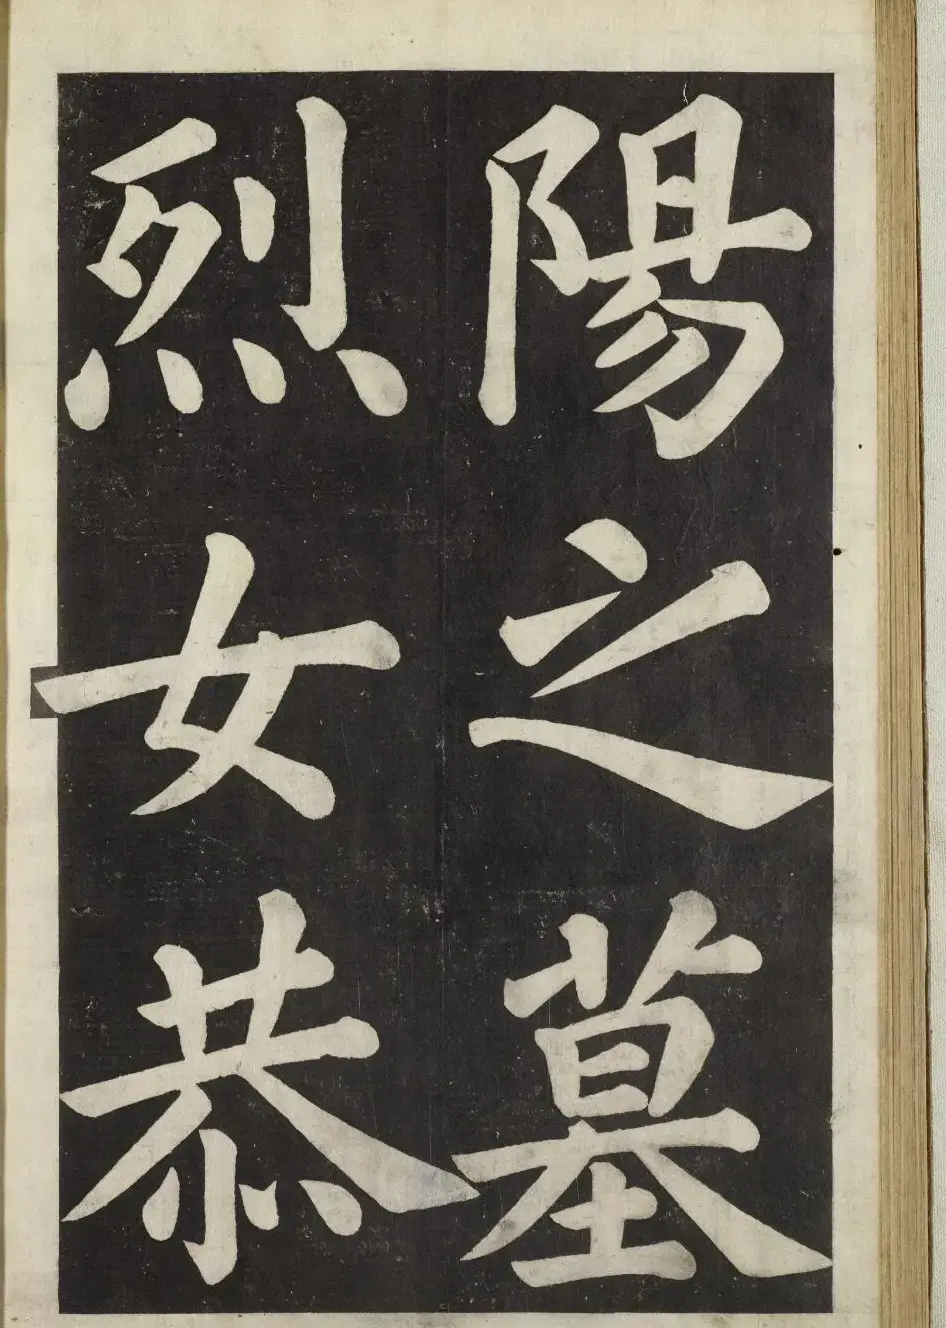 陽之墓
烈女恭